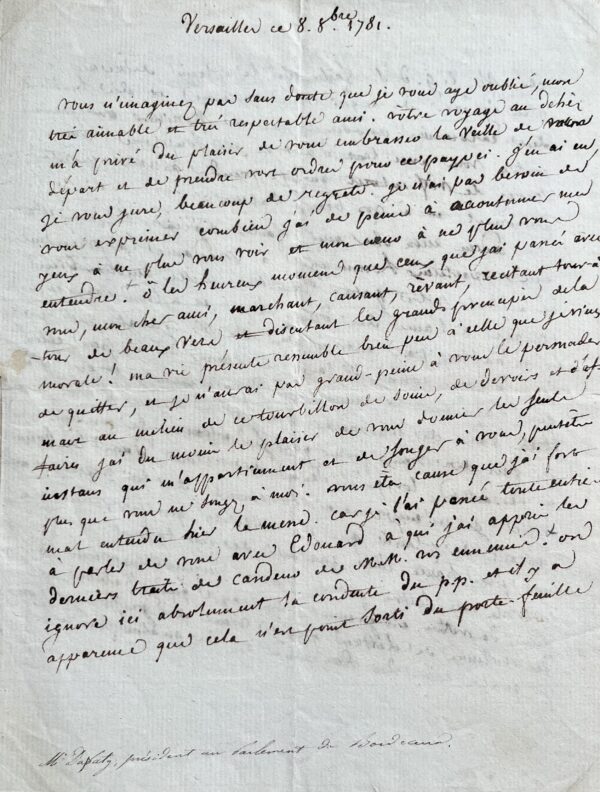 Versailles ce 8. 8.bre 1781.
vous n'imaginez pas sans doute que je vous aye oublié, mon
très aimable et très respectable ami. votre voyage au
m'a privé du plaisir de vous embrasser la veille de votre
départ et de prendre vos ordres pour ce pays ci. j'en ai eu,
je vous jure, beaucoup de regrets. je n'ai pas besoin de
vous exprimer combien j'ai de peine à accoutumer mes
yeux à ne plus vous voir et mon coeur à ne plus vous
entendre! ô les heureux momens que ceux que j'ai passé avec
vous, mon cher ami, marchant, causant, rêvant, récitant tour-à-
-tour de beaux vers et discutant les grands principes de la
morale! ma vie présente ressemble bien peu à celle que je viens
de quitter, et je n'aurai pas grand-peine à vous le persuader
mais au milieu de ce tourbillon de soins, de devoirs et d'af-
faires j'ai du moins le plaisir de vous donner les seuls
instans qui m'appartiennent et de songer à vous, peutêtre
plus que vous ne songez à moi. vous êtes cause que j'ai fort
mal entendu hier la messe. car je l'ai passé toute entie-
à parler de vous avec Edouard à qui j'ai appris les
derniers traits de candeur de M.M. vos ennemis! on
ignore ici absolument la conduite du p.p. et il y a
apparence que cela n'est point sorti du porte-feuille
Mr Dupaty, président au Parlement de Bordeaux.